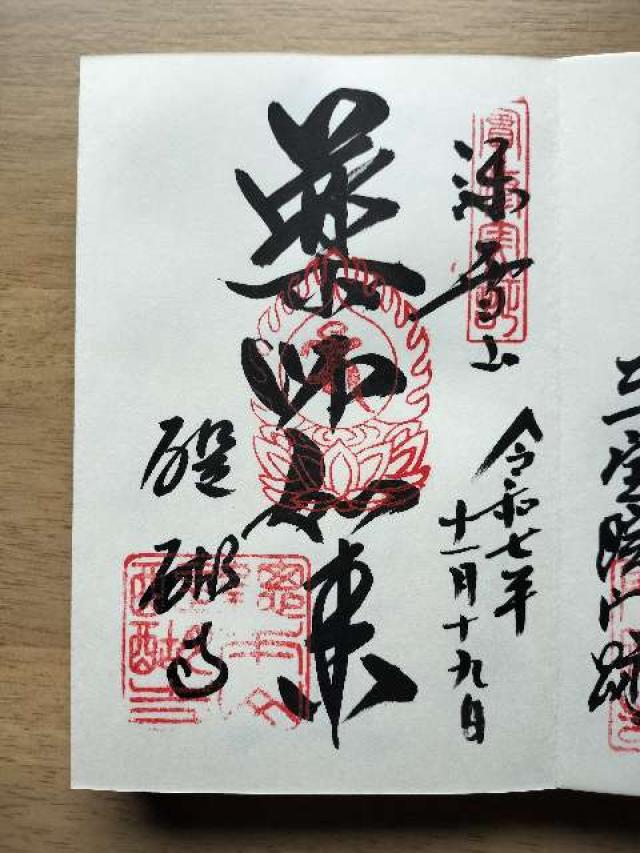 三宝院門跡
深雪山
令和七年
十一月十九日
薬師如来
醍醐寺